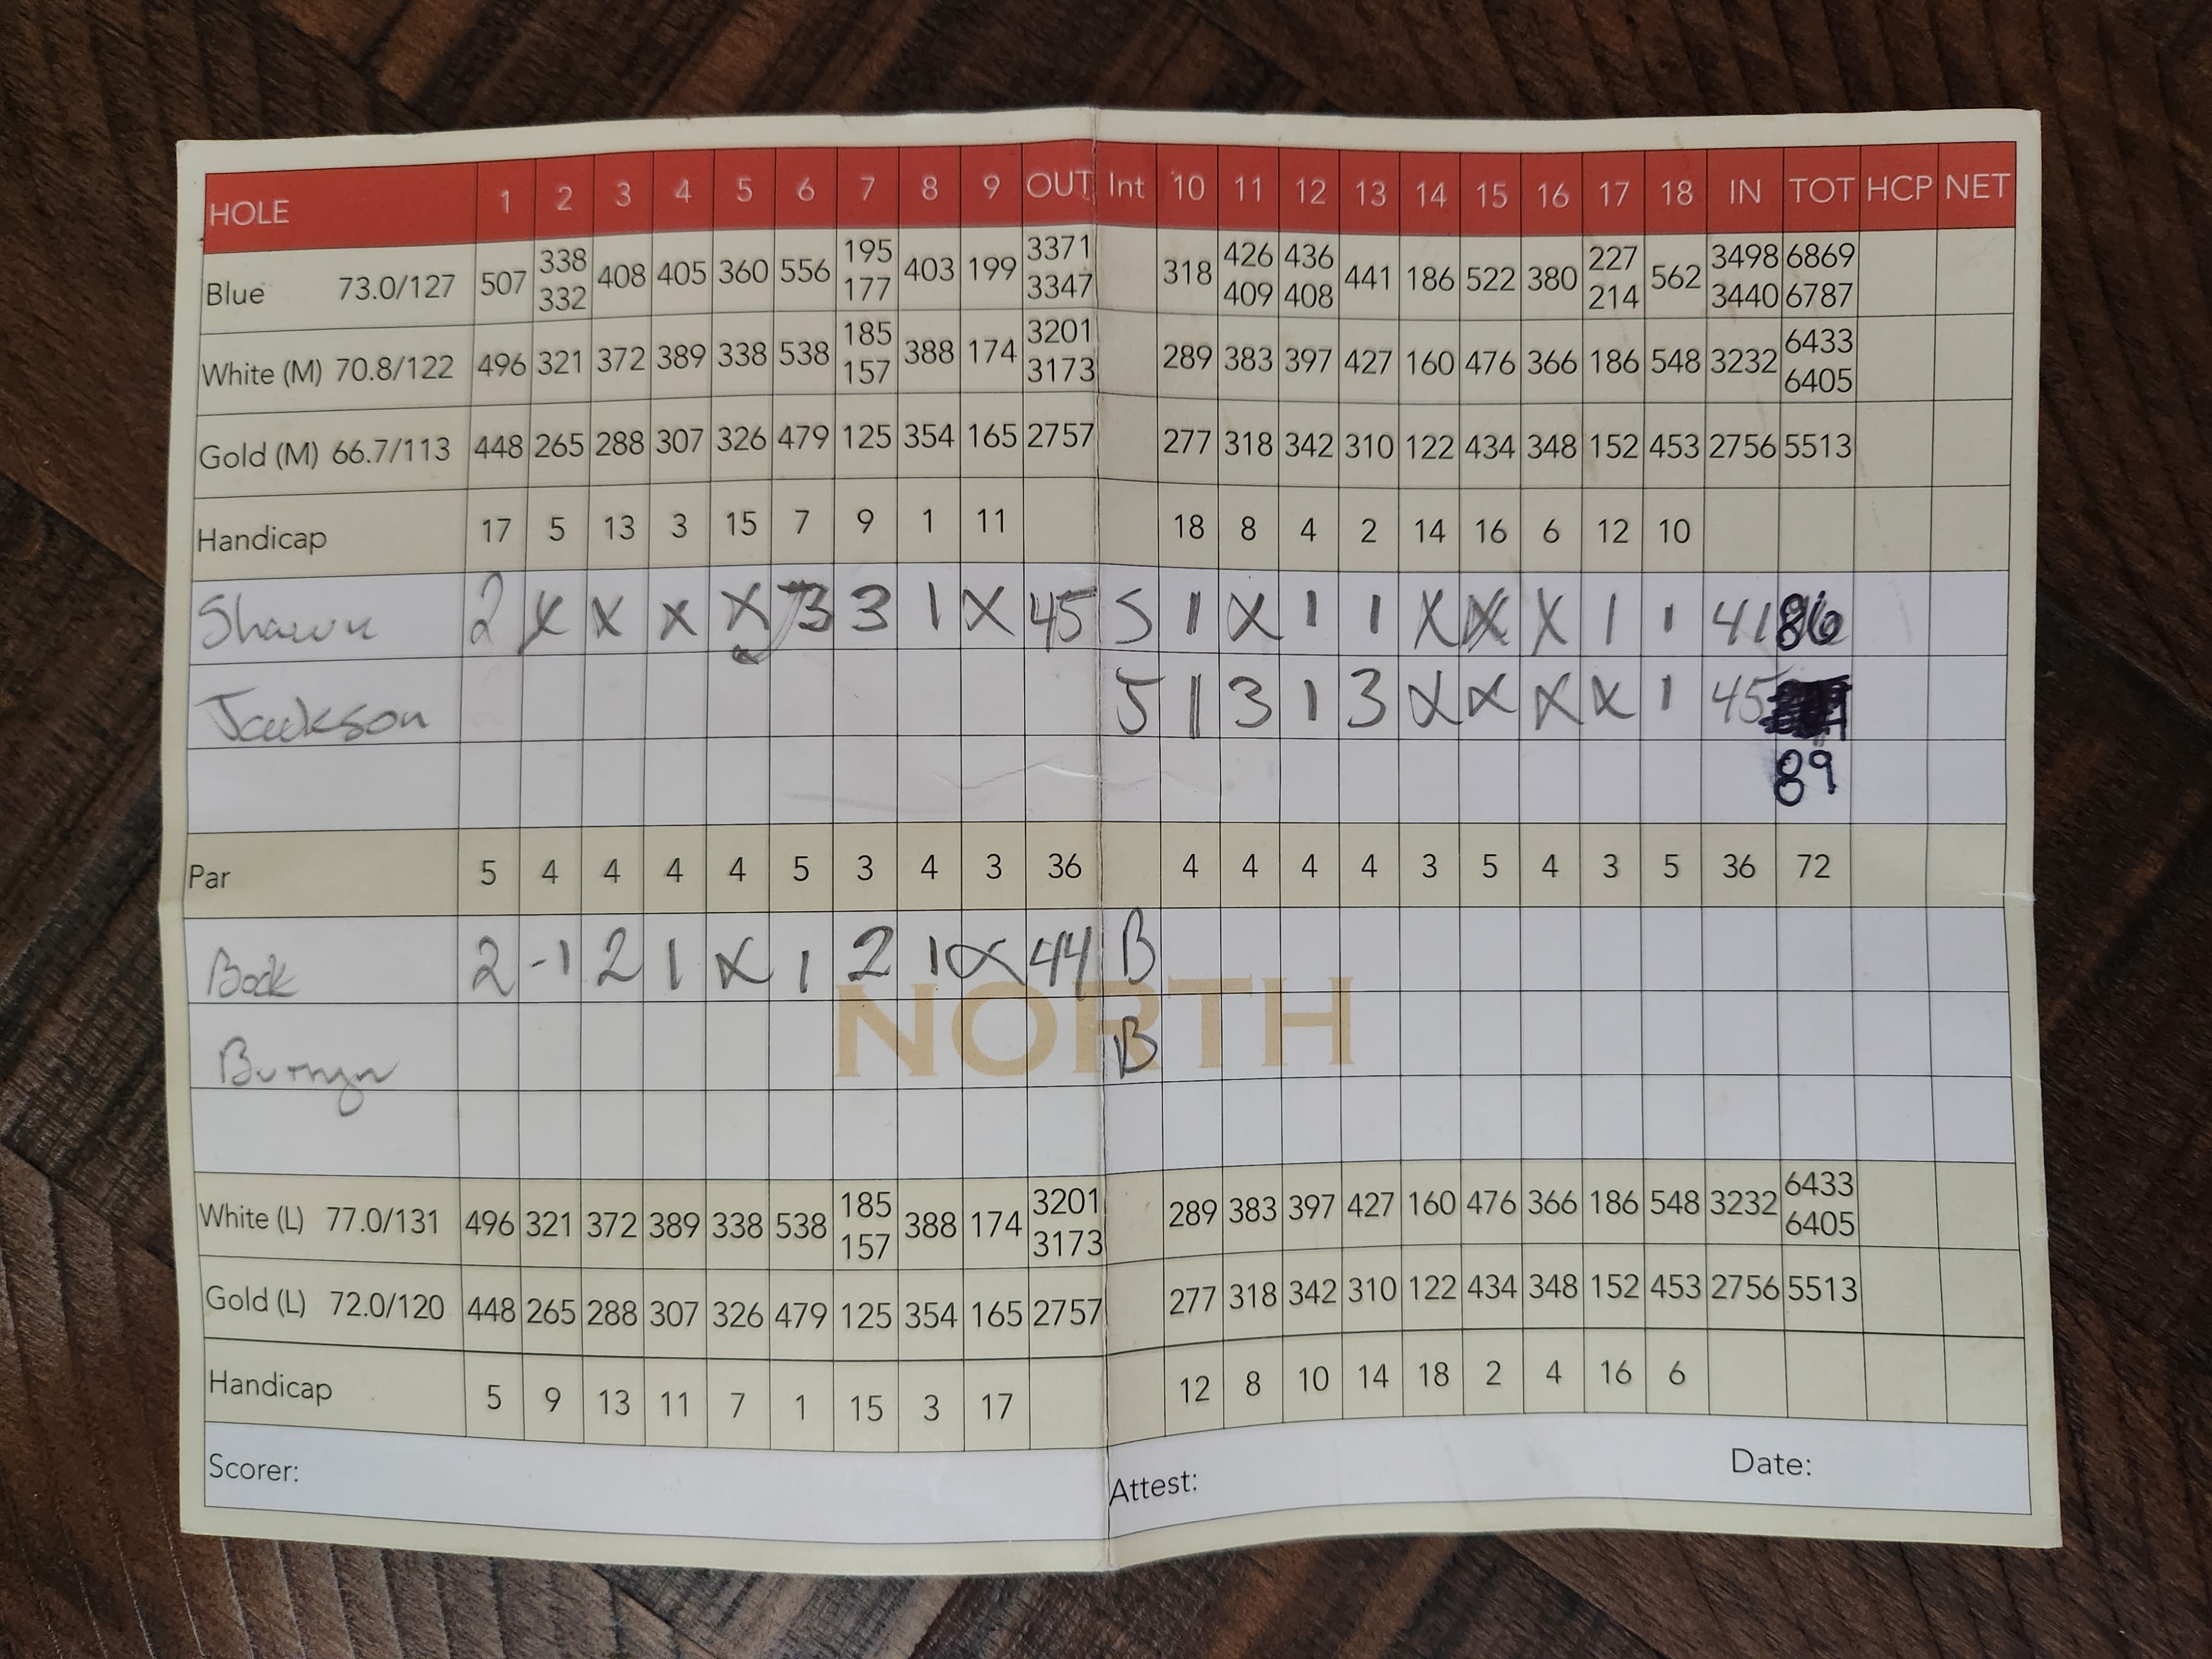 HOLE 1 2 3 4 5 6 7 8 9 OUT Int 10 11 12 13 14 15 16 17 18 IN TOT HCP NET
Blue 73.0/127 507 338 332 408 405 360 556 195 177 403 199 3371 3347 318 426 409 436 408 441 186 522 380 227 214 562 3498 3440 6869 6787
White (M) 70.8/122 496 321 372 389 338 538 185 157 388 174 3201 3173 289 383 397 427 160 476 366 186 548 3232 6433 6405
Gold (M) 66.7/113 448 265 288 307 326 479 125 354 165 2757 277 318 342 310 122 434 348 152 453 2756 5513
Handicap 17 5 13 3 15 7 9 1 11 18 8 4 2 14 16 6 12 10
Shawn 2 X X X X 3 3 1 X 45 S 1 X 1 1 X X X 1 1 41 86
Jackson J 1 3 1 3 X X X X 1 45
89
Par 5 4 4 4 4 5 3 4 3 36 4 4 4 4 3 5 4 3 5 36 72
Bock 2 -1 2 1 X 1 2 1 X 44 B
NORTH
B
White (L) 77.0/131 496 321 372 389 338 538 185 157 388 174 3201 3173 289 383 397 427 160 476 366 186 548 3232 6433 6405
Gold (L) 72.0/120 448 265 288 307 326 479 125 354 165 2757 277 318 342 310 122 434 348 152 453 2756 5513
Handicap 5 9 13 11 7 1 15 3 17 12 8 10 14 18 2 4 16 6
Scorer: Attest: Date: